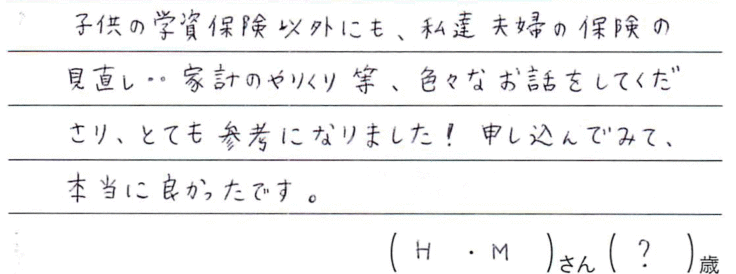 子供の学資保険以外にも、私達夫婦の保険の
見直し‥家計のやりくり等、色々なお話をしてくだ
さり、とても参考になりました！申し込んでみて、
本当に良かったです。
(H・M)さん(?)歳